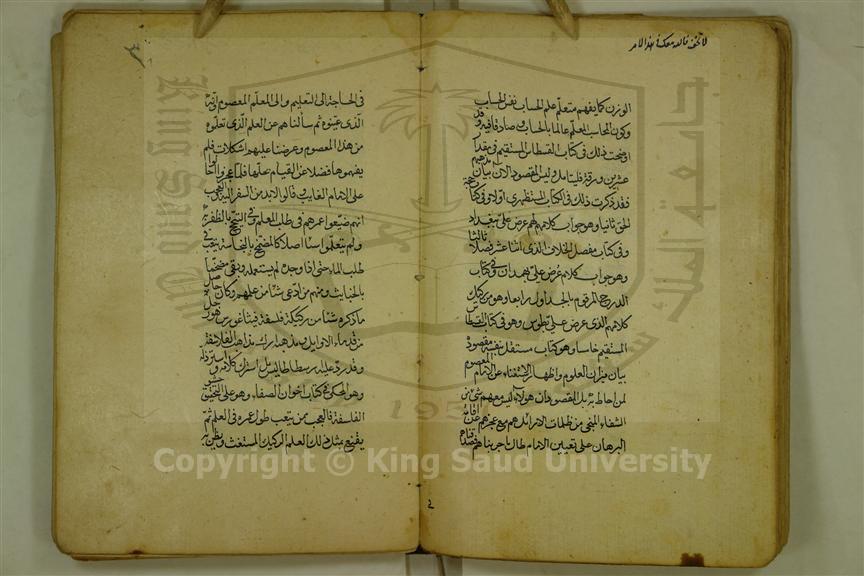 لا تخف فالله معك في هذا الامر
الوزن كما يفهم متعلم علم الحساب نفس الحساب
وكون المحاسب المعلم عالما بالحساب وصادقا فيه وقد
اوضحت ذلك في كتاب القسطاس المستقيم في مقدار
عشرين ورقة فليتامل وليس المقصود الان بيان
فقد ذكرت ذلك في الكتاب المستظهري اولا وفي كتاب حجة
الحق ثانيا وهو جواب كلام لهم عرض علي ببغداد
وفي كتاب مفصل الخلاف الذي اثنا عشر فصلا ثالثا
وهو جواب كلام عرض علي بهمدان وفي كتاب
الدرج المرقوم بالجداول رابعا وهو من ركيك
كلامهم الذي عرض علي بطوس وفي كتاب القسطاس
المستقيم خامسا وهو كتاب مستقل بنفسه مقصوده
بيان ميزان العلوم واظهار الاستغناء عن الامام المعصوم
لمن احاط به بل المقصود ان هؤلاء ليس معهم شيء من
الشفاء المنجي من ظلمات الاراء بل هم مع عجزهم عن اقامة
البرهان على تعيين الامام طال ما جربناهم فصدقناهم
في الحاجة الى التعليم والى المعلم المعصوم وانه
الذي عينوه ثم سالناهم عن العلم الذي تعلموه
من هذا المعصوم وعرضنا عليهم اشكالات فلم
يفهموها فضلا عن القيام بحلها فلما عجزوا احالوا
على الامام الغايب وقالوا لابد من السفر اليه والعجب
انهم ضيعوا عمرهم في طلب المعلم وفي التبجح بالظفر به
ولم يتعلموا منه شيئا اصلا كالمضمخ بالنجاسة يتعب في
طلب الماء حتى اذا وجده لم يستعمله وبقي مضمخا
بالخبايث ومنهم من ادعى شيئا من علمهم وكان حاصل
ما ذكره شيئا من ركيك فلسفة فيثاغورس وهو رجل
من قدماء الاوايل ومذهبه ارك مذاهب الفلاسفة
وقد رد عليه ارسطاطاليس بل استرك كلامه واسترذله
وهو المحكي في كتاب اخوان الصفاء وهو على التحقيق حشو
الفلسفة فالعجب ممن يتعب طول عمره في العلم ثم
يقنع بمثل ذلك العلم الركيك المستغث ويظن
Copyright © King Saud University
King Saud University
جامعة الملك سعود
1957